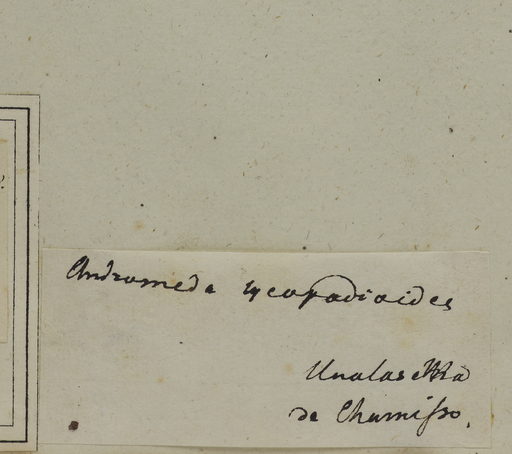 Andromeda lycopodioides
Unalaschka
de Chamisso.